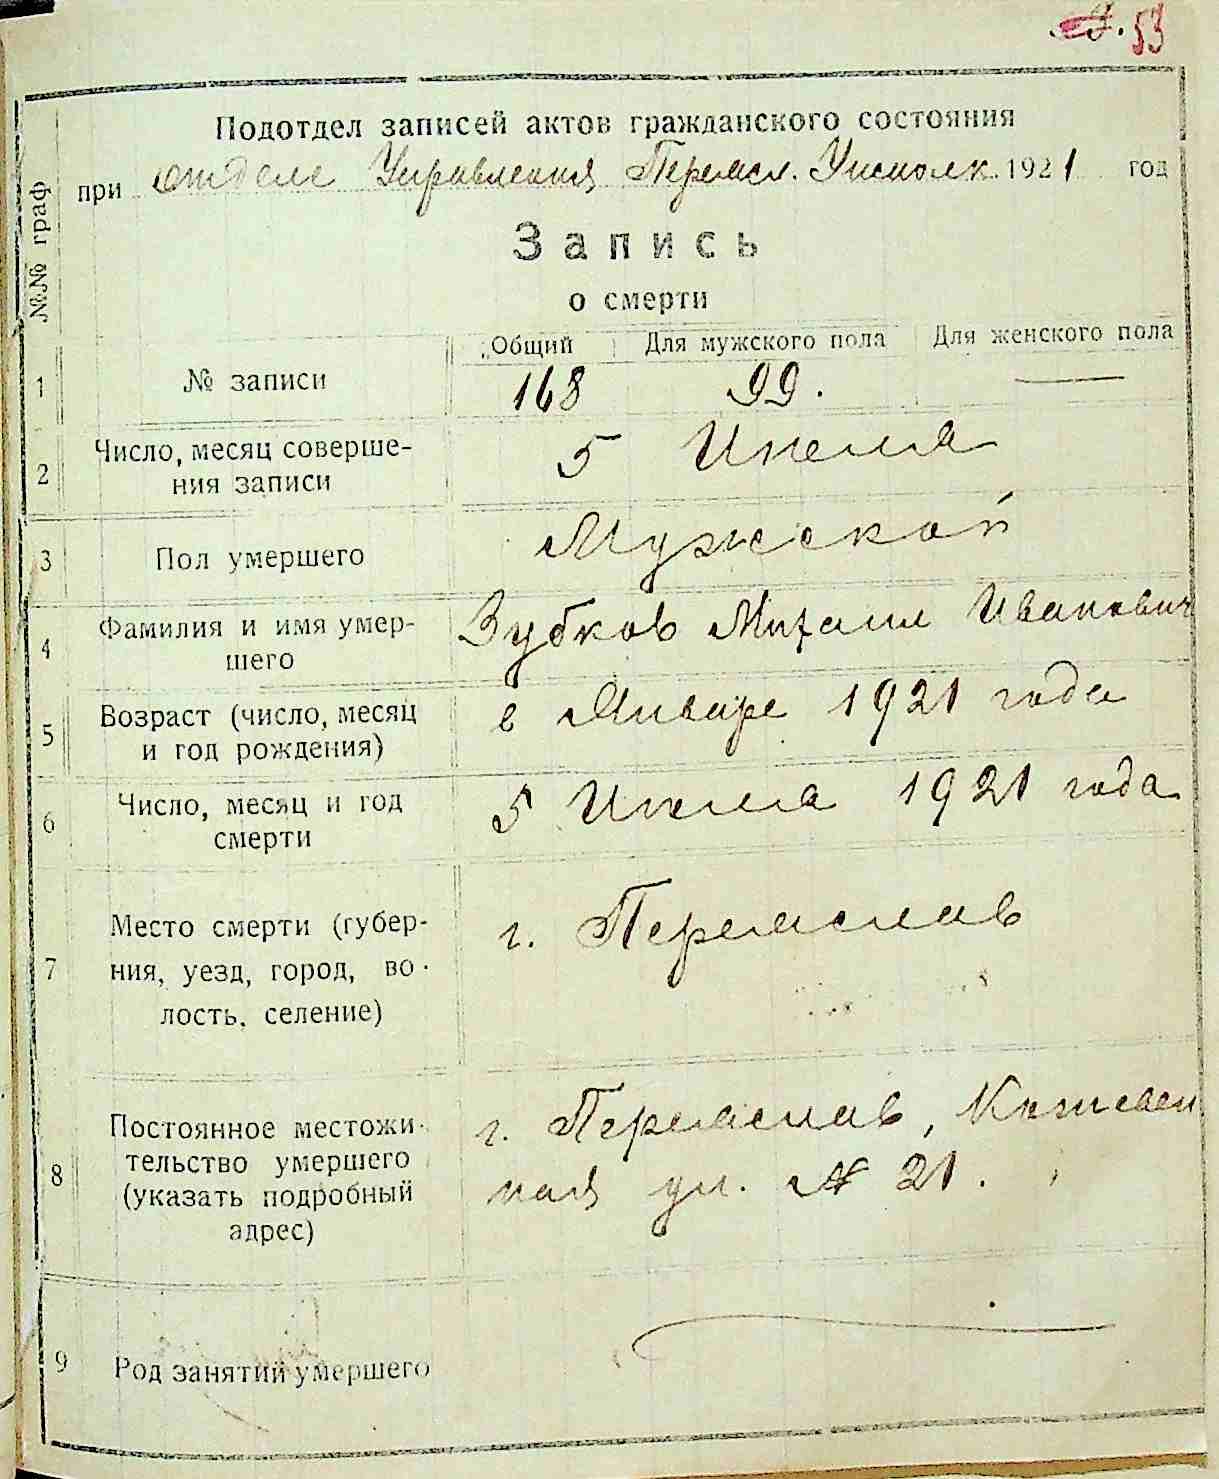 53
Подотдел записей актов гражданского состояния
при отделе Управления Перемсл. Уисполк. 1921 год
№№ граф
Запись
о смерти
Общий Для мужского пола Для женского пола
1 № записи 168 99. —
2 Число, месяц соверше-
ния записи 5 Июля
3 Пол умершего Мужской
4 Фамилия и имя умер-
шего Зубков Михаил Иванович
5 Возраст (число, месяц
и год рождения) в Январе 1921 года
6 Число, месяц и год
смерти 5 Июля 1921 года
7 Место смерти (губер-
ния, уезд, город, во-
лость, селение) г. Перемсль
8 Постоянное местожи-
тельство умершего
(указать подробный
адрес) г. Перемсль,
ная ул. № 21.
9 Род занятий умершего —